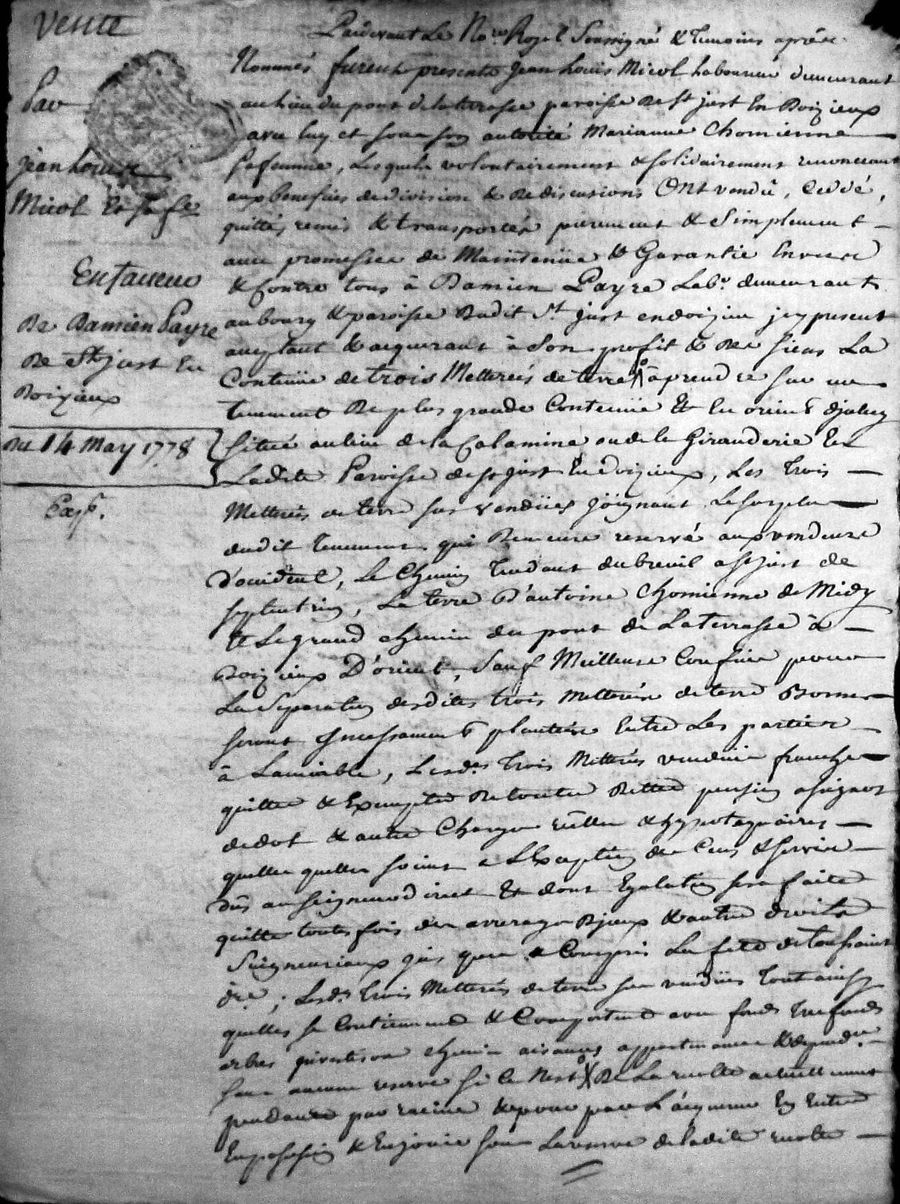 Vente
Par
jean Louis
Micol et sa fe
En faveur
De Damien Payre
De St just En
Doizieux
Du 14 May 1778
Pardevant Le Nore Royal Soussigné & Temoins après
Nommés furent presents Jean Louis Micol laboureur demeurant
au lieu du pont de la terrasse paroisse de St just En Doizieux
avec luy et sous son autorité Marianne Chomienne
sa femme, Lesquels volontairement & solidairement renonceant
aux benefices de division & de discutions Ont vendu, Ceddé,
quitté, remis & transporté purement & Simplement
avec promesse de Maintenüe & Garantie Envers
& Contre tous à Damien Payre Labr demeurant
au bourg & paroisse Dudit St just en doizieu jcy present
aceptant & acquerant à Son profit & des siens La
Contenüe de trois Metterées de terre à prendre sur un
tenement De plus grande Contenüe Et
Située au lieu de la Calamine ou de la Giranderie En
Ladite Paroisse de St just En doizieux, Les trois
Metterées de terre sus vendües joignant Le surplus
dudit tenement qui Demeure reservé aux vendeurs
D'occident, Le Chemin Tendant du breuil a St just de
septentrion, La terre D'antoine Chomienne de Midy
& Le grand chemin du pont de La terrasse à
Doizieux D'orient, Sauf Meilleurs Confins pour
La Separation desdites trois Metterées de terre Bornes
seront jncessamment plantées Entre Les parties
à Lamiable, Lesds Trois Metterées vendües franches
quittes & Exemptes De toutes Dettes pension
de dot & autres Charges réelles & hypotequaires
quelles quelles soient a L'Exception des Cens & servis
Dûs au seigneur direct Et dont Egalation sera faite
quitte toutes fois des arrerages Djceux & autres droits
Seigneuriaux jusques a Compris La fête de toussaint
dre; Lesds Trois Metterées de terre sus vendües Tout ainsy
quelles se Contiennent & Comportent avec fonds Trefonds
arbres chemin aisances appartenances & depend.
sans aucune reserve si ce Nest De La recolte actuellement
pendante par racine & pour par L'acquereur En Entrer
En possession & En jouir sous La reserve de ladite recolte